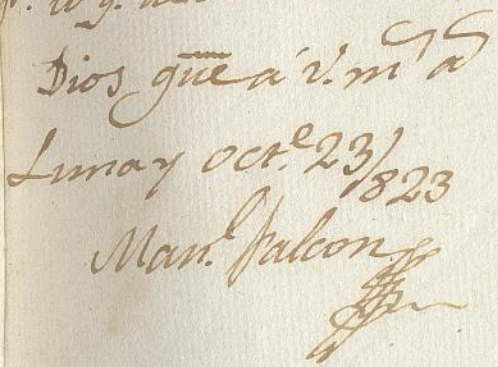 Dios gũe a v. ms as
Luna y Oct.e 23/823
Man.l Falcon